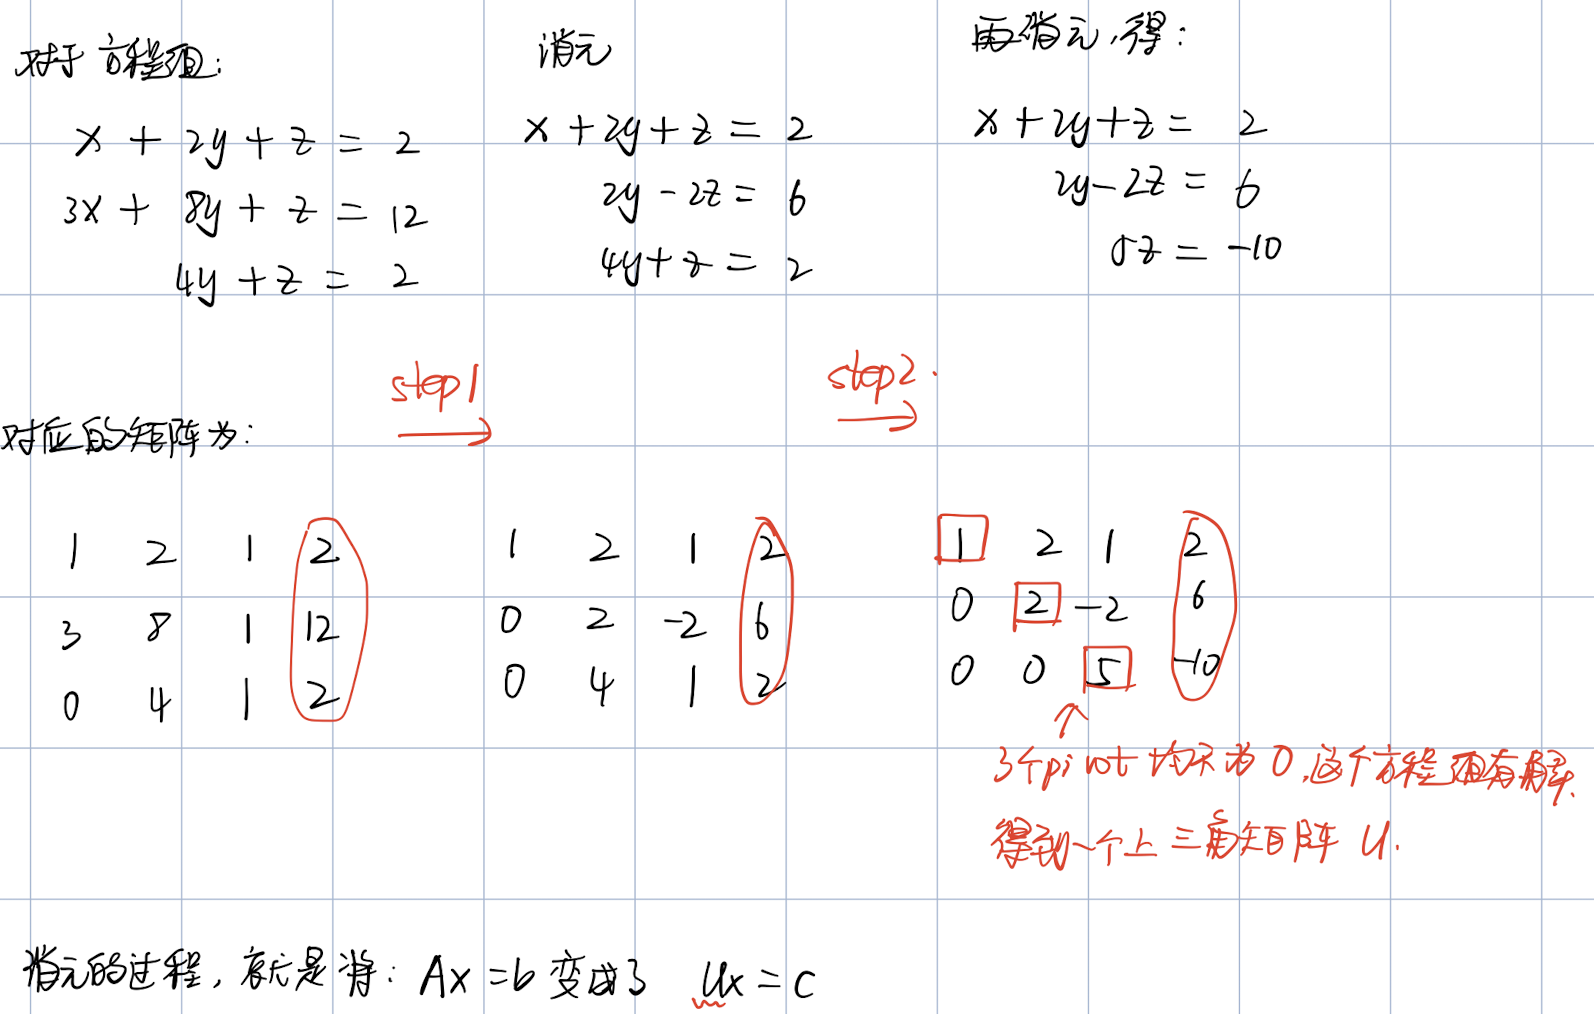 对于方程组:
x + 2y + z = 2
3x + 8y + z = 12
4y + z = 2
消元
x + 2y + z = 2
2y - 2z = 6
4y + z = 2
再消元,得:
x + 2y + z = 2
2y - 2z = 6
5z = -10
step1
step2.
对应的矩阵为:
1 2 1 2
3 8 1 12
0 4 1 2
1 2 1 2
0 2 -2 6
0 4 1 2
1 2 1 2
0 2 -2 6
0 0 5 -10
3个pivot均不为0,这个方程组有解.
得到一个上三角矩阵 U.
消元的过程,就是将: Ax = b 变成了 Ux = c